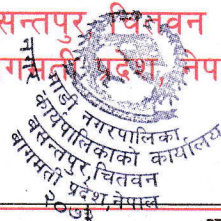 सन्तपुर, चितवन
गमती प्रदेश, नेप
माडी नगरपालिका
नगर कार्यपालिकाको कार्यालय
बसन्तपुर, चितवन
बागमती प्रदेश, नेपाल
२०७३